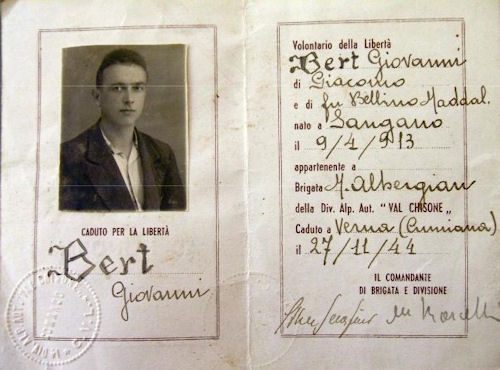 CADUTO PER LA LIBERTÀ
Bert
Giovanni
Volontario della Libertà
Bert Giovanni
di Giacomo
e di fu Bellino Maddal.
nato a Sangano
il 9/4/913
appartenente a
Brigata M. Albergian
della Div. Alp. Aut. "VAL CHISONE"
Caduto a Verna (Cumiana)
il 27/11/44
IL COMANDANTE
DI BRIGATA E DIVISIONE